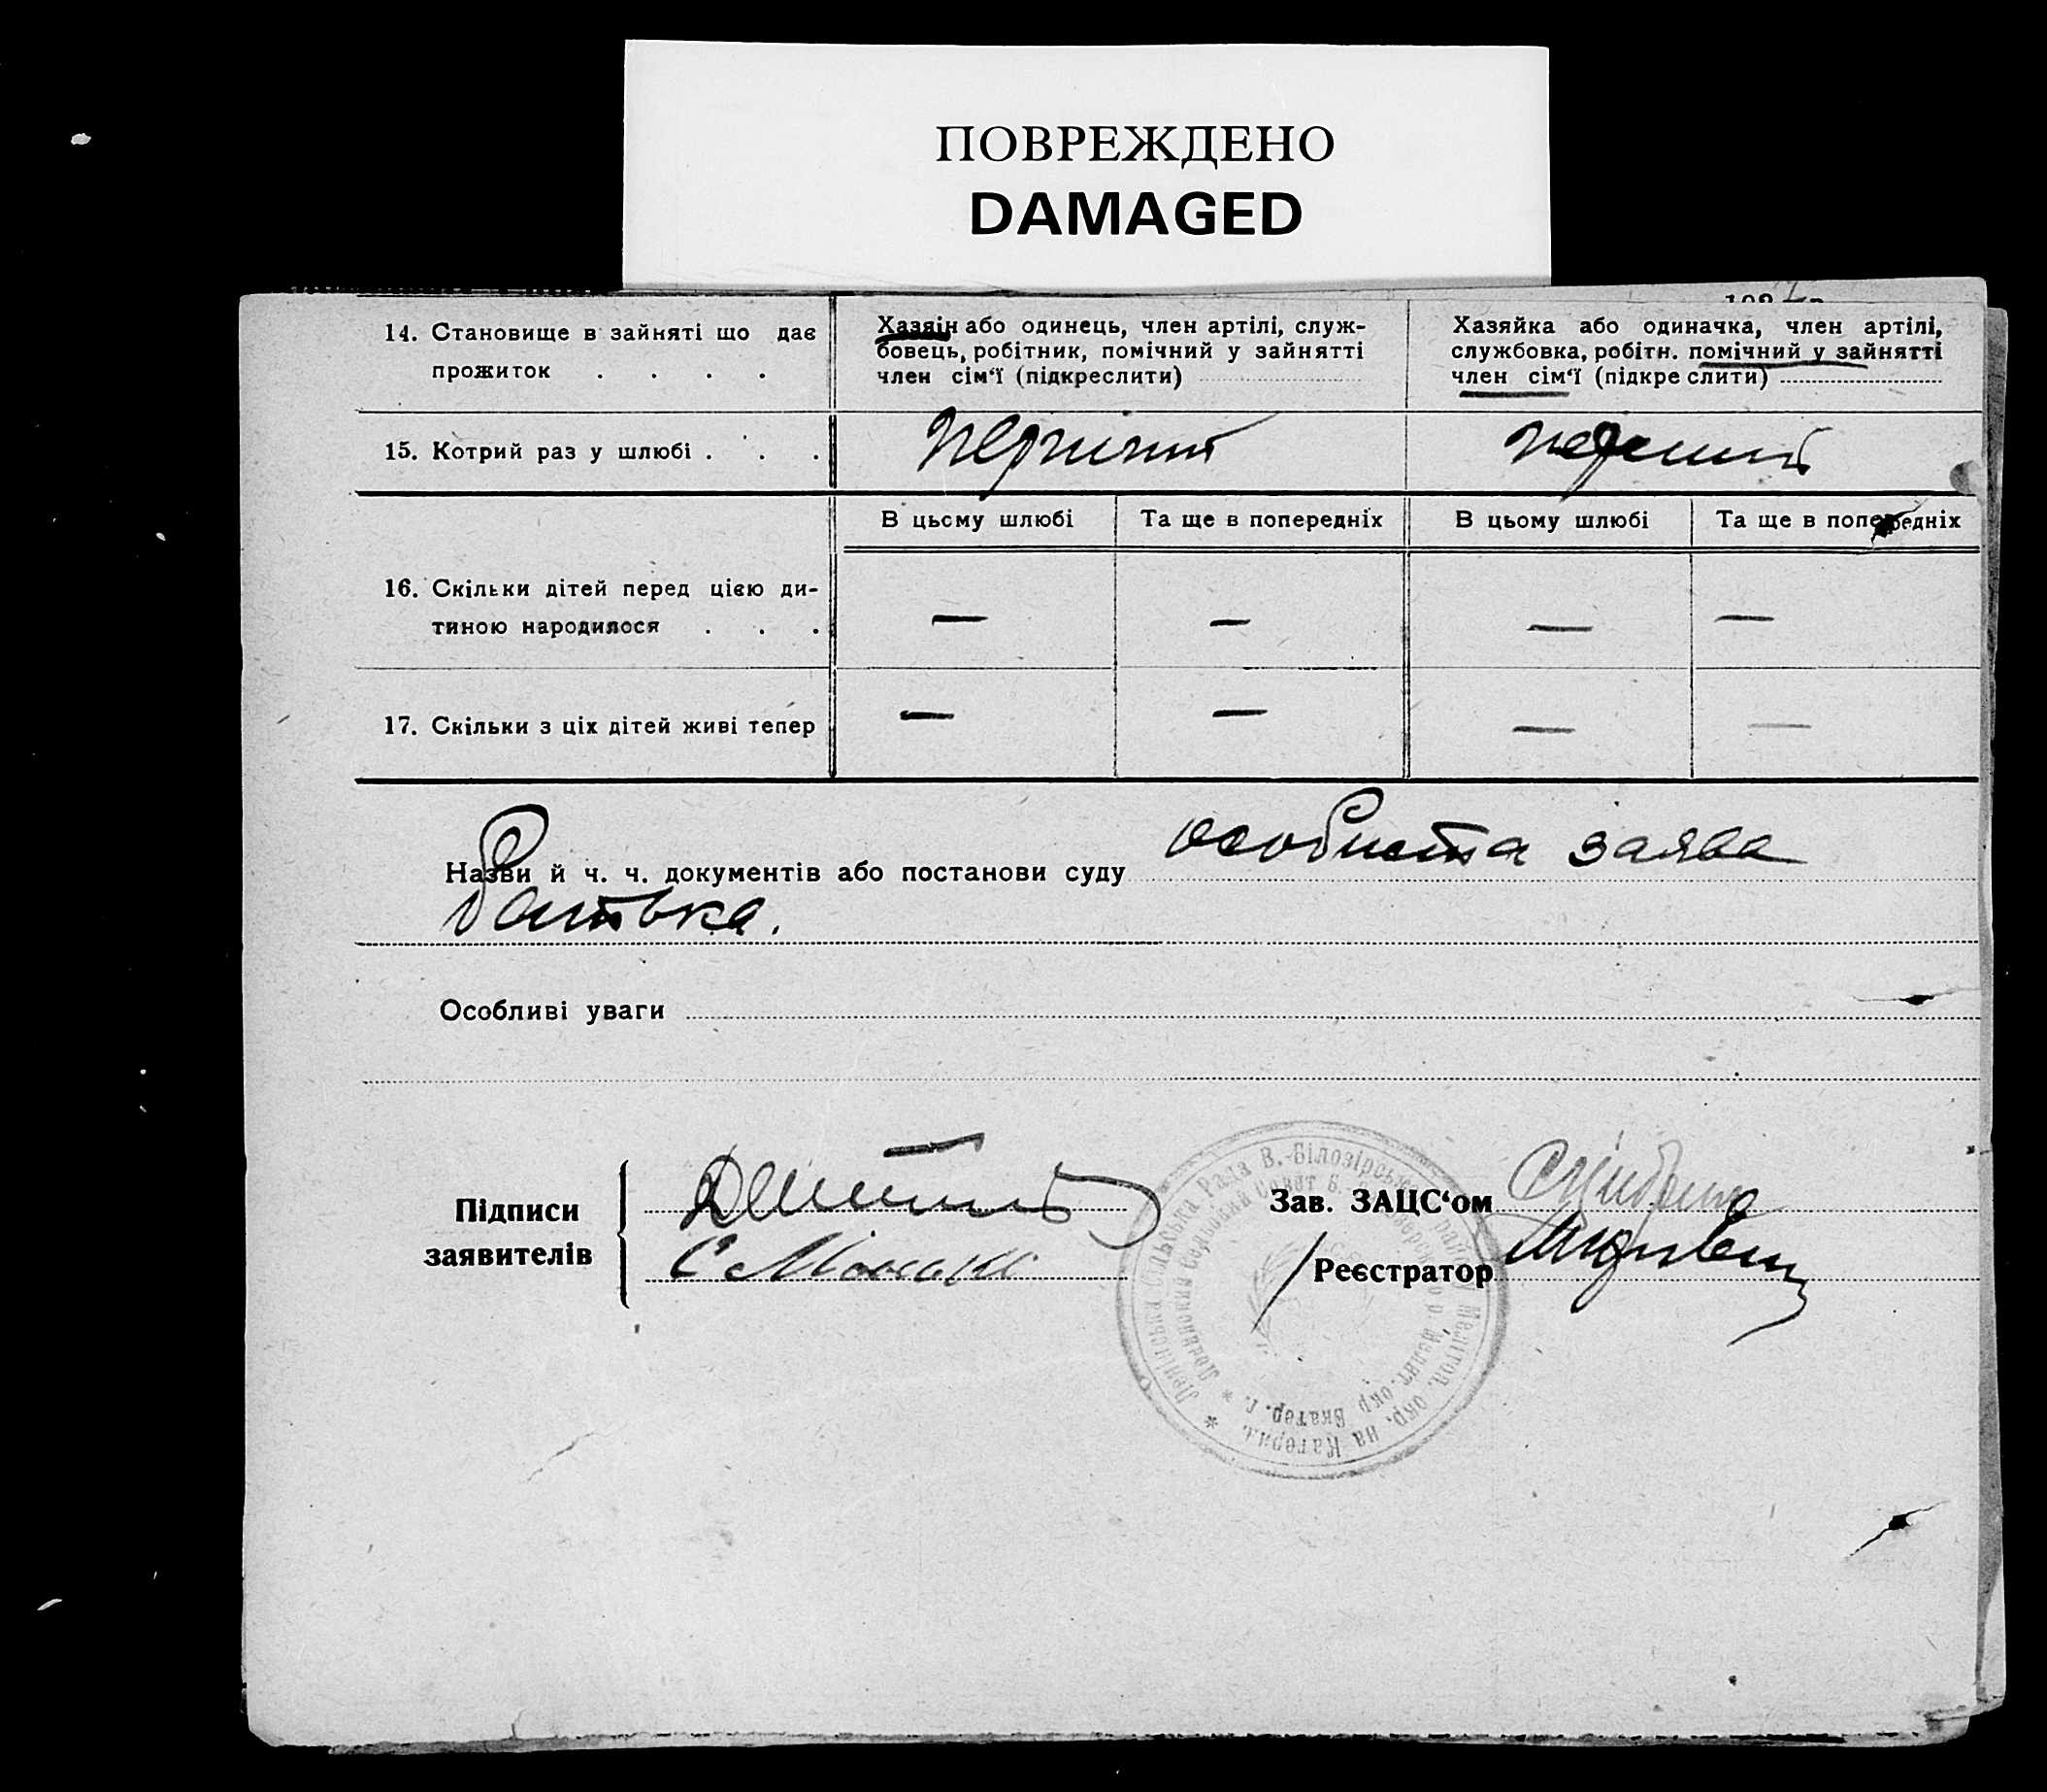 ПОВРЕЖДЕНО
DAMAGED
14. Становище в зайняті що дає
прожиток . . . .
Хазяїн або одинець, член артілі, служ-
бовець, робітник, помічний у зайнятті
член сім‘ї (підкреслити)
Хазяйка або одиначка, член артілі,
службовка, робітн. помічний у зайнятті
член сім‘ї (підкреслити)
15. Котрий раз у шлюбі . . .
перший
перший
В цьому шлюбі
Та ще в попередніх
В цьому шлюбі
Та ще в попередніх
16. Скільки дітей перед цією ди-
тиною народилося . . .
— — — —
17. Скільки з ціх дітей живі тепер
— — — —
Назви й ч. ч. документів або постанови суду особиста заява
батька.
Особливі уваги
Підписи
заявителів
Зав. ЗАЦС‘ом
Реєстратор
Сільська Рада В.-Білозірсько району Меліт. окр. на Катерин.